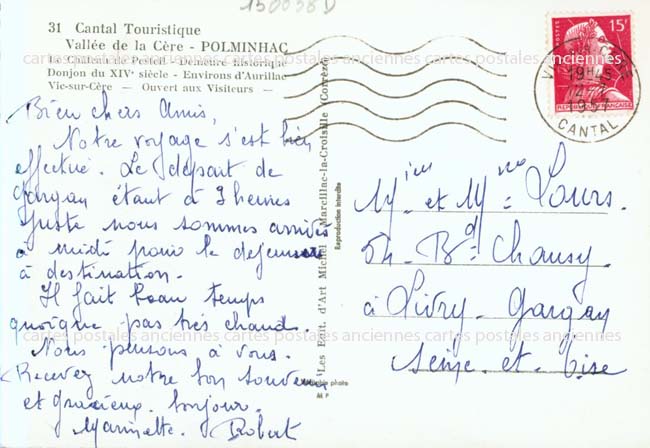 150038D
31 Cantal Touristique
Vallée de la Cère - POLMINHAC
Le Château de Pesteil - Demeure historique
Donjon du XIVe siècle - Environs d'Aurillac
Vic-sur-Cère — Ouvert aux Visiteurs —
Bien chers Amis,
Notre voyage s'est bien
effectué. Le départ de
Gargan étant à 9 heures
juste nous sommes arrivés
à midi pour le déjeuner
à destination.
Il fait beau temps
quoique pas très chaud.
Nous pensons à vous.
Recevez notre bon souvenir
et gracieux bonjour.
Marinette. Robert
Les Edit. d'Art Michel Marcillac-la-Croisille (Corrèze)
Reproduction interdite
Véritable photo
M P
POSTES
15F
REPUBLIQUE FRANÇAISE
19H45
CANTAL
Mr et Mme Lours.
54 Bd Chansy
à Livry-Gargan
Seine-et-Oise
cartes postales anciennes cartes postales anciennes cartes postales anciennes
cartes postales anciennes cartes postales anciennes cartes postales anciennes